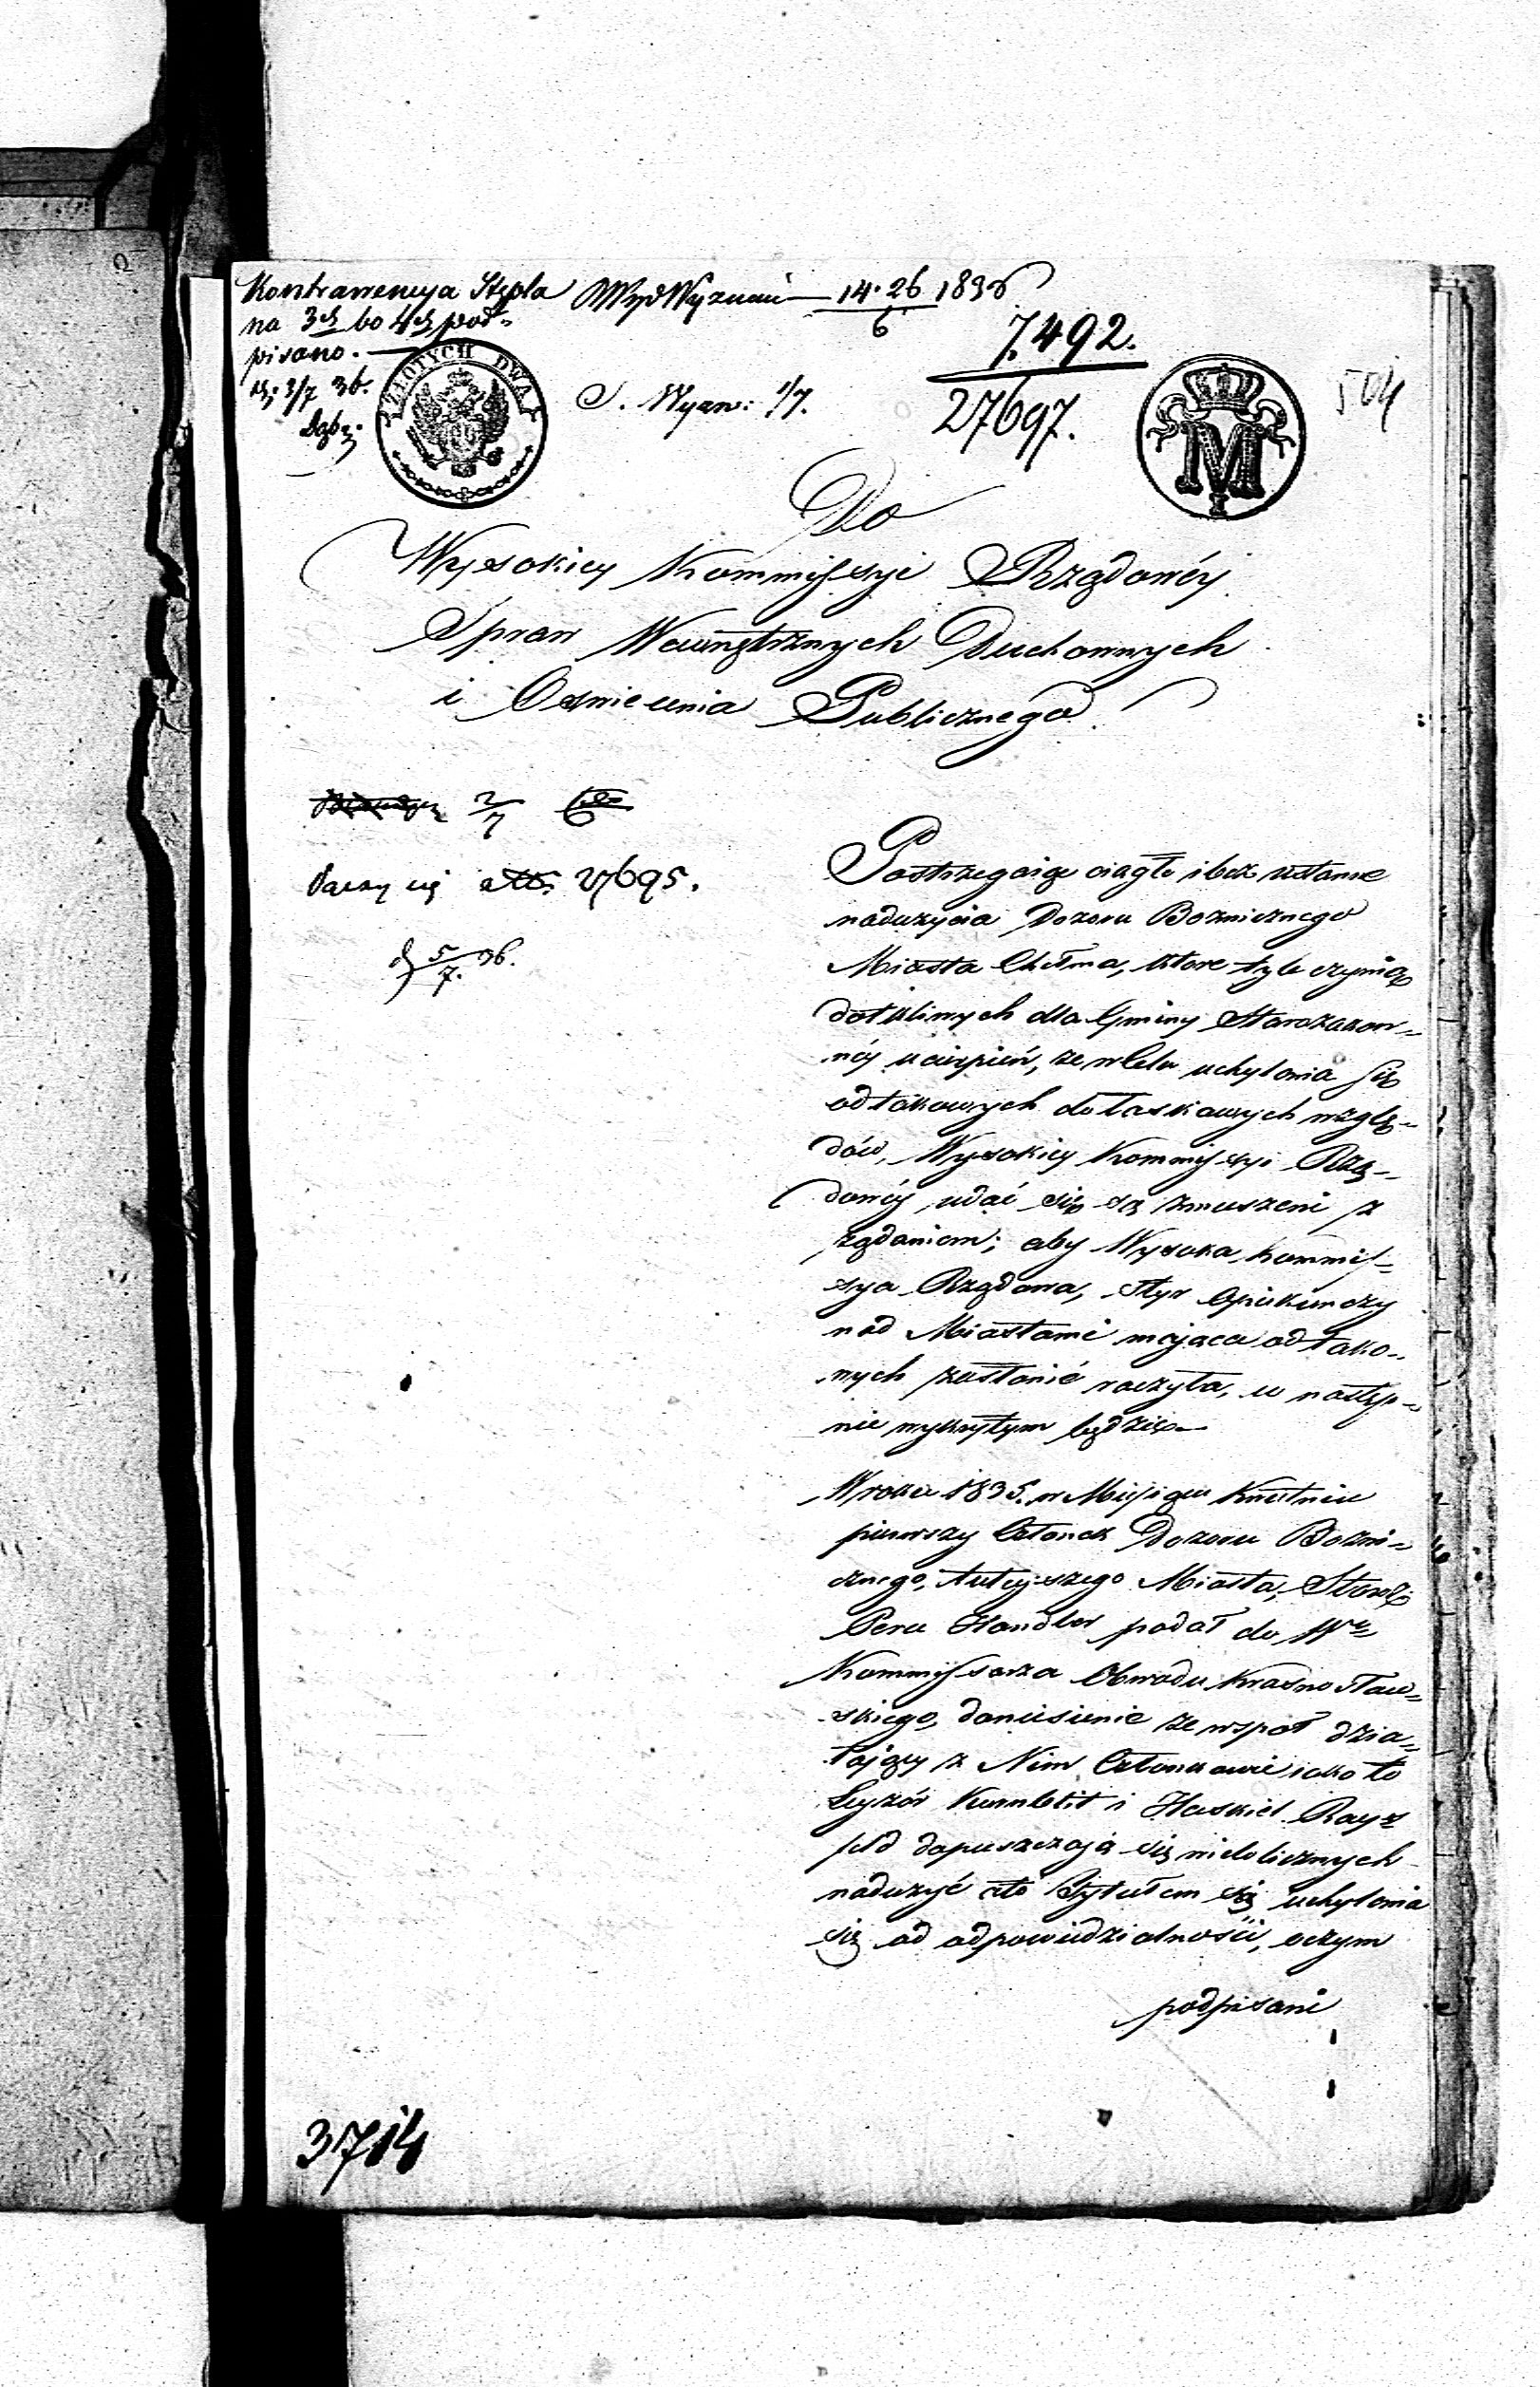 Kontrawencya Stępla
na 3ch bo 4ch pod-
pisano.
d: 3/7 36.
Wyd Wyznań 14.26 1836
6
7,492.
27697.
ZŁOTYCH DWA
S. Wyzn: 1/7.
M
504
Do
Wysokiey Kommissyi Rządowéy
Spraw Wewnętrznych Duchownych
i Oswiecenia Publicznego.
2/7
łączy się 27695.
d 5/7. 36.
Postrzegaiąc ciągłe i bez ustanne
nadużycia Dozoru Boznicznego
Miasta Chełma, ktore tyle czynią
dotkliwych dla Gminy Starozakon-
néy ucierpień, ze w Celu uchylenia się
od takowych do łaskawych wzglę-
dów, Wysokiey Kommissyi Rzą-
dowéy udać się są zmuszeni z
ządaniem; aby Wysoka Kommis-
sya Rządowa, Styr Opiekunczy
nad Miastami maiąca od tako-
wych zasłonić raczyła, co nastep-
nie wykrytym będzie
W roku 1835. w Miesiącu Kwietniu
pierwszy Członek Dozoru Bozni-
cznego, tuteyszego Miasta, Starozo
Handler podał do We
Kommissarza Obwodu Krasnostaw-
skiego, doniesienie ze wspoł dzia-
łający z Nim Członkowie iako to
Leyzór Kumblit i Haskiel Rayz
feld dopuszczają się nielicznych
nadużyć a to tytułem uchylenia
się od odpowiedzialności, oczym
podpisani
3714